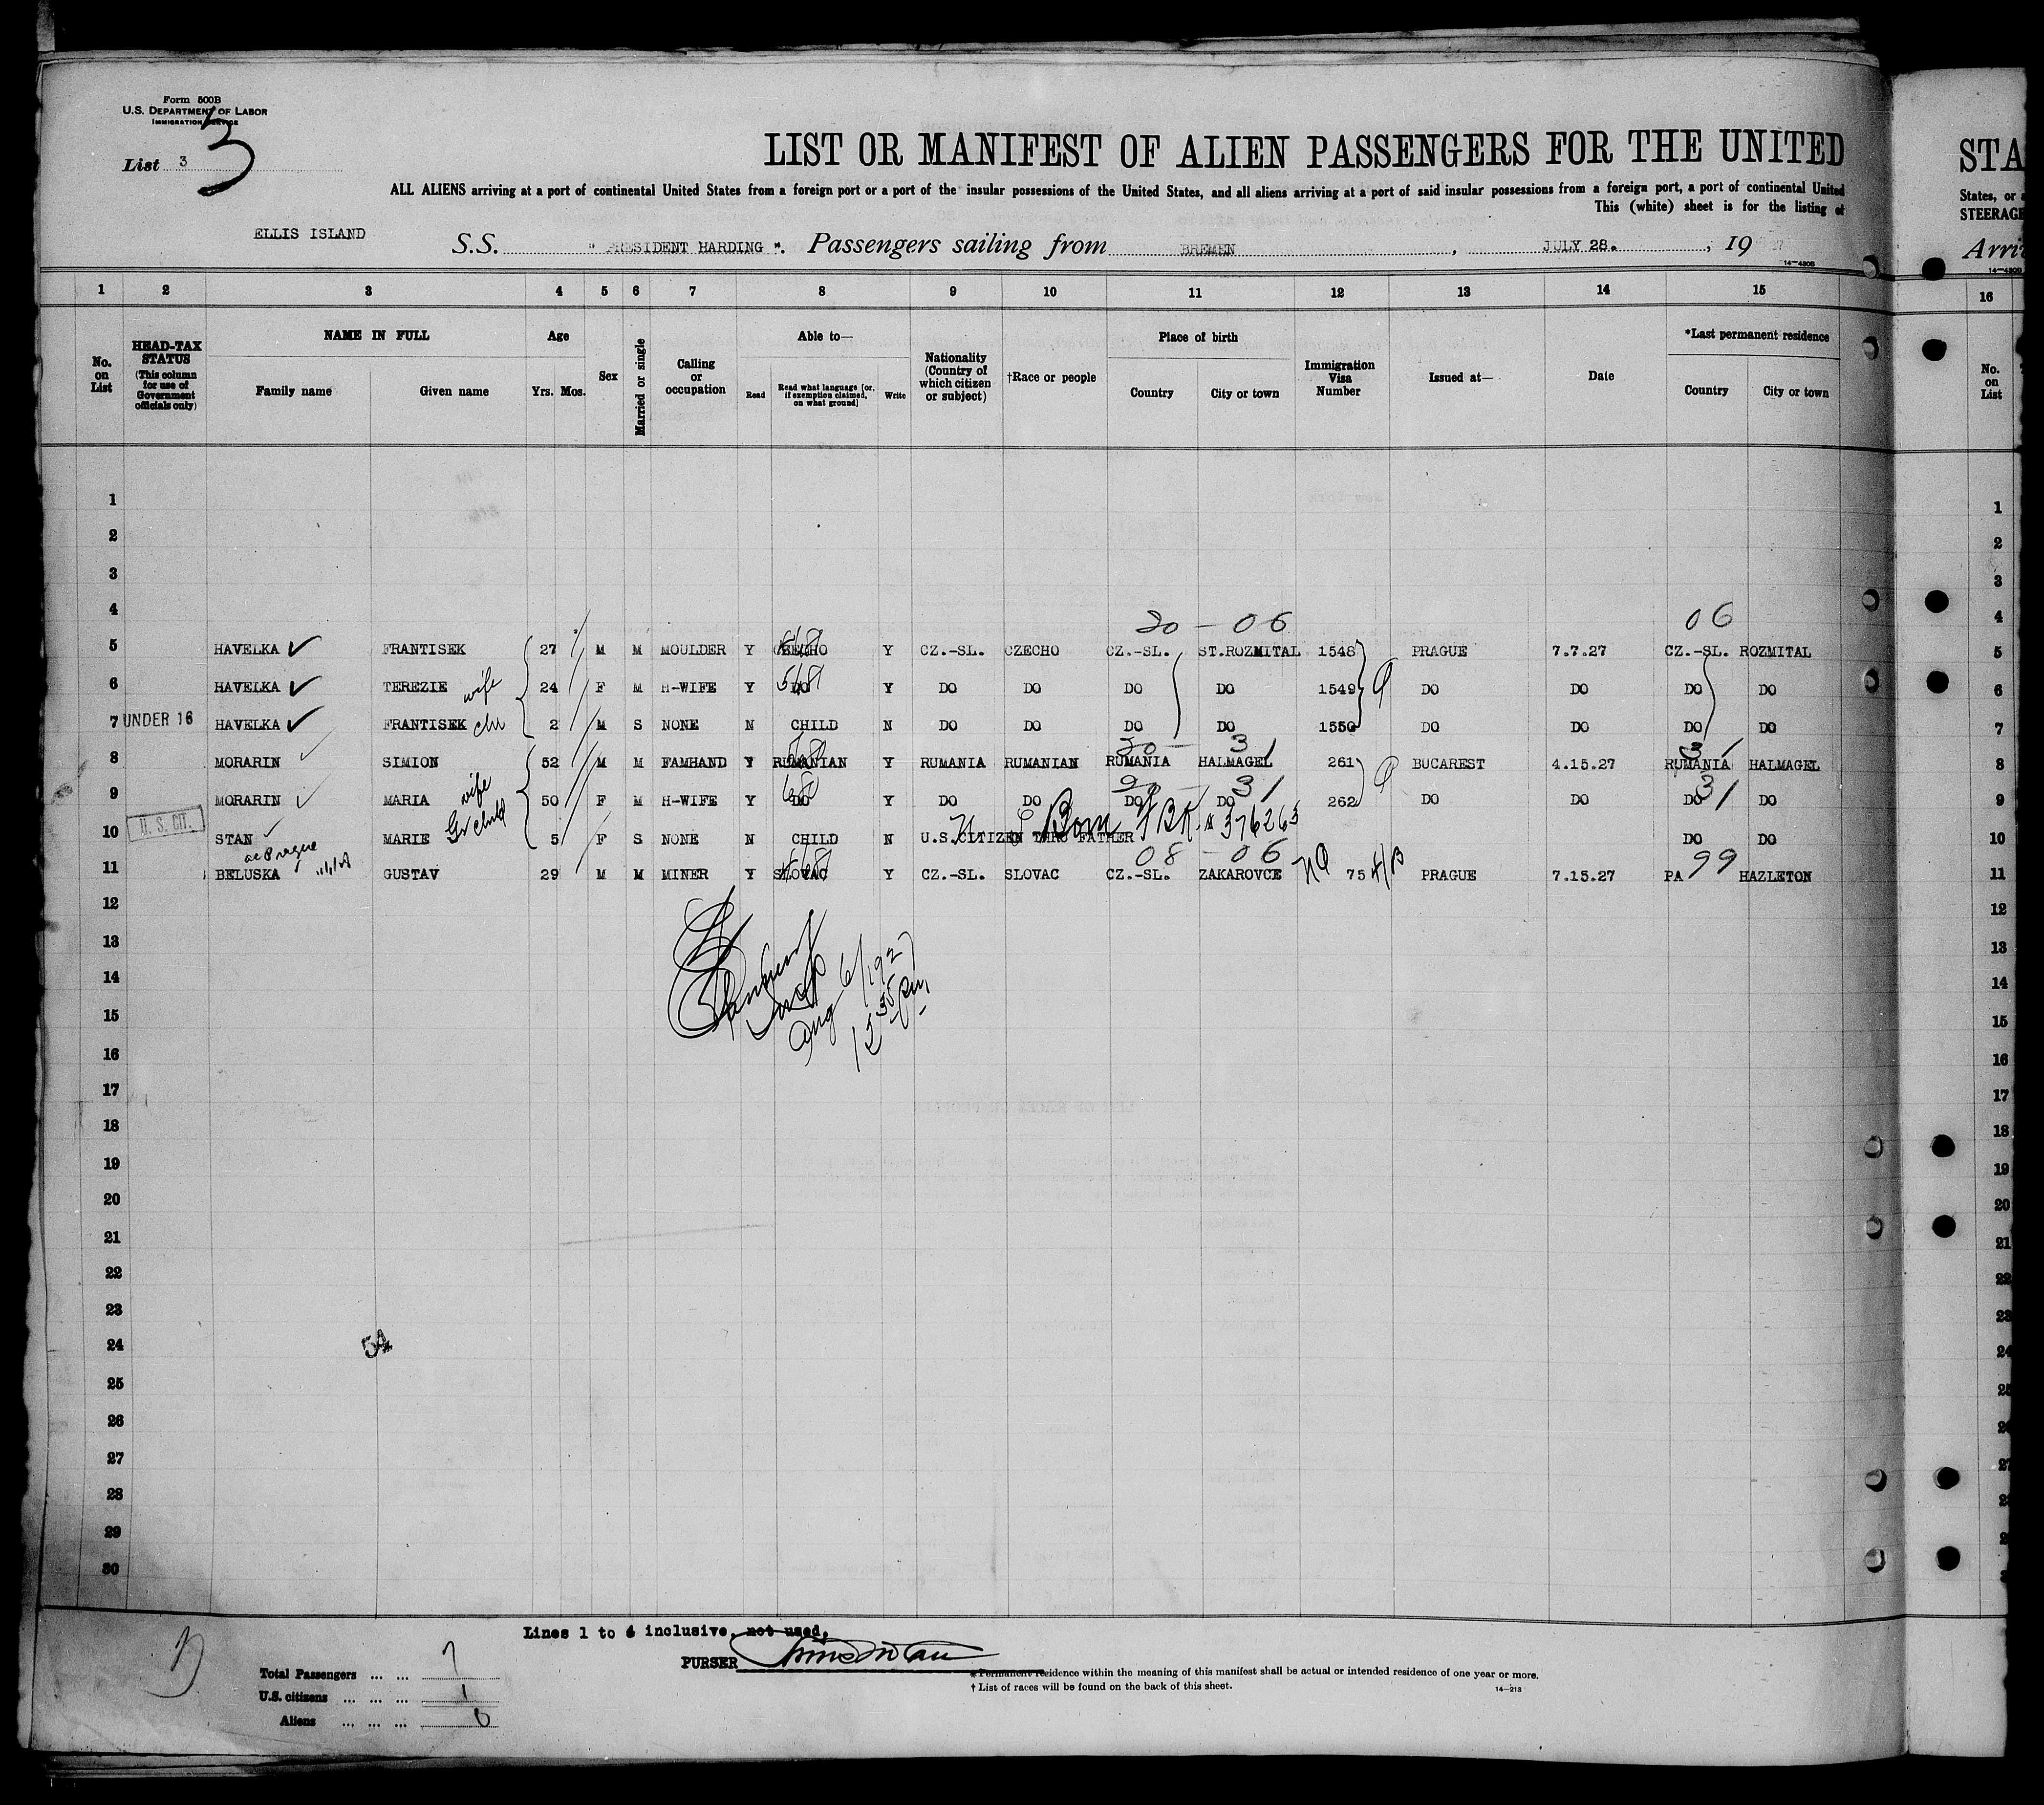 Form 500B
U.S. DEPARTMENT OF LABOR
IMMIGRATION SERVICE
List 3
3
LIST OR MANIFEST OF ALIEN PASSENGERS FOR THE UNITED
STA
ALL ALIENS arriving at a port of continental United States from a foreign port or a port of the insular possessions of the United States, and all aliens arriving at a port of said insular possessions from a foreign port, a port of continental United
States, or a
This (white) sheet is for the listing of
STEERAGE
ELLIS ISLAND S.S. " PRESIDENT HARDING ". Passengers sailing from BREMEN, JULY 28., 19 27
Arri
14—430B
14—430B
1 2 3 4 5 6 7 8 9 10 11 12 13 14 15 16
No. on List HEAD-TAX STATUS (This column for use of Government officials only) NAME IN FULL Family name Given name Age Yrs. Mos. Sex Married or single Calling or occupation Able to— Read Read what language [or, if exemption claimed, on what ground] Write Nationality (Country of which citizen or subject) †Race or people Place of birth Country City or town Immigration Visa Number Issued at— Date *Last permanent residence Country City or town No. on List
1 1
2 2
3 3
4 4
20 - 06 06
5 HAVELKA FRANTISEK 27 M M MOULDER Y CZECHO Y CZ.-SL. CZECHO CZ.-SL. ST.ROZMITAL 1548 PRAGUE 7.7.27 CZ.-SL. ROZMITAL 5
6 HAVELKA TEREZIE wife 24 F M H-WIFE Y DO Y DO DO DO DO 1549 DO DO DO DO 6
7 UNDER 16 HAVELKA FRANTISEK chi 2 M S NONE N CHILD N DO DO DO DO 1550 DO DO DO DO 7
30 - 31 31
8 MORARIN SIMION 52 M M FAMHAND Y RUMANIAN Y RUMANIA RUMANIAN RUMANIA HALMAGEL 261 BUCAREST 4.15.27 RUMANIA HALMAGEL 8
31 31
9 MORARIN MARIA wife 50 F M H-WIFE Y DO Y DO DO DO DO 262 DO DO DO DO 9
10 U. S. CIT. STAN MARIE Gr child 5 F S NONE N CHILD N U.S.CITIZEN THRU FATHER Born 376263 DO DO 10
08 - 06 99
11 BELUSKA GUSTAV 29 M M MINER Y SLOVAC Y CZ.-SL. SLOVAC CZ.-SL. ZAKAROVCE NQ 75 PRAGUE 7.15.27 PA HAZLETON 11
12 12
13 13
14 14
15 15
Aug 6/1927
12 35 pm
16 16
17 17
18 18
19 19
20 20
21 21
22 22
23 23
24 54 24
25 25
26 26
27 27
28 2
29 2
30
Lines 1 to 4 inclusive, not used.
PURSER
Total Passengers ... ... 7
U.S. citizens ... ... ... 1
Aliens ... ... ... 6
* Permanent residence within the meaning of this manifest shall be actual or intended residence of one year or more.
† List of races will be found on the back of this sheet.
14—213